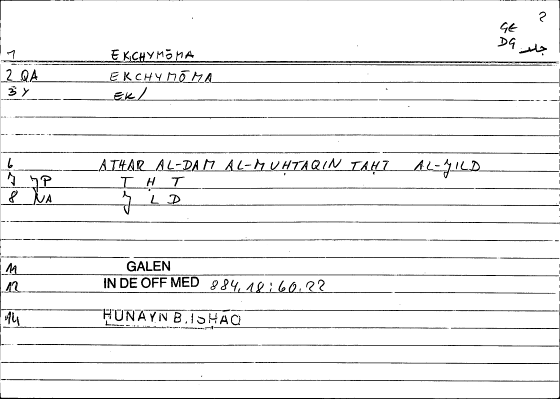 ?
GE
DG جلد
1 EKCHYMŌMA
2 QA EKCHYMŌMA
3 Y EK/
6 ATHAR AL-DAM AL-MUḤTAQIN TAḤT AL-JILD
7 JP T Ḥ T
8 NA J L D
11 GALEN
12 IN DE OFF MED 884,18:60.22
14 ḤUNAYN B. ISḤĀQ